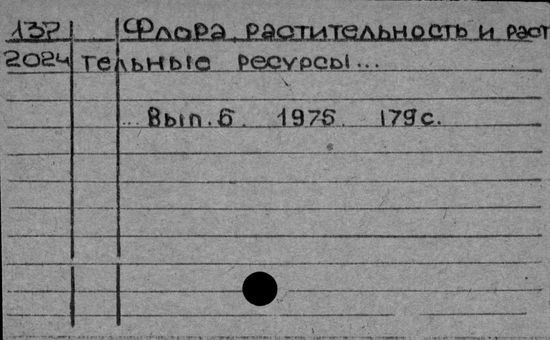 137 Флора, растительность и раст
2024 тельные ресурсы...
... Вып. 6 1975. 179 с.